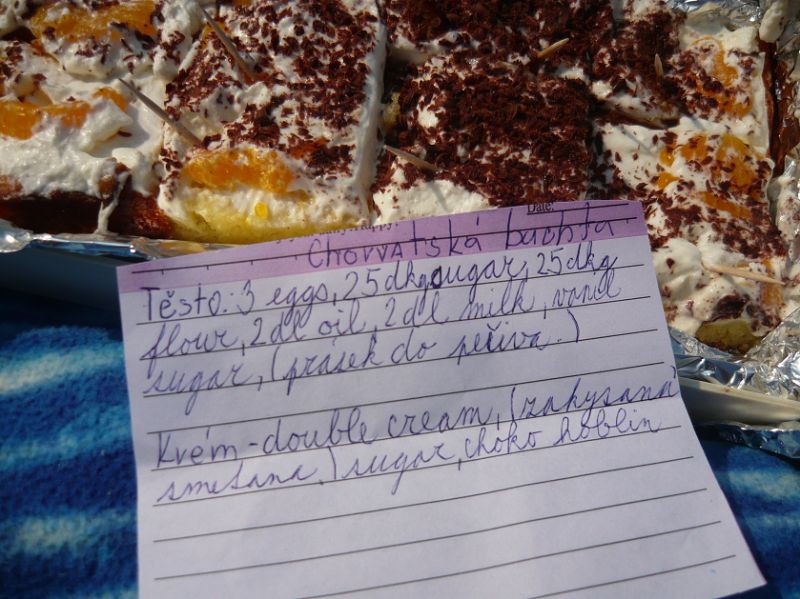 Date:
Chorvatská buchta
Těsto: 3 eggs, 25dkg sugar, 25dkg
flour, 2dl oil, 2dl milk, vanil
sugar, (prášek do pečiva.)
Krém - double cream, (zakysaná
smetana) sugar, choko hoblin